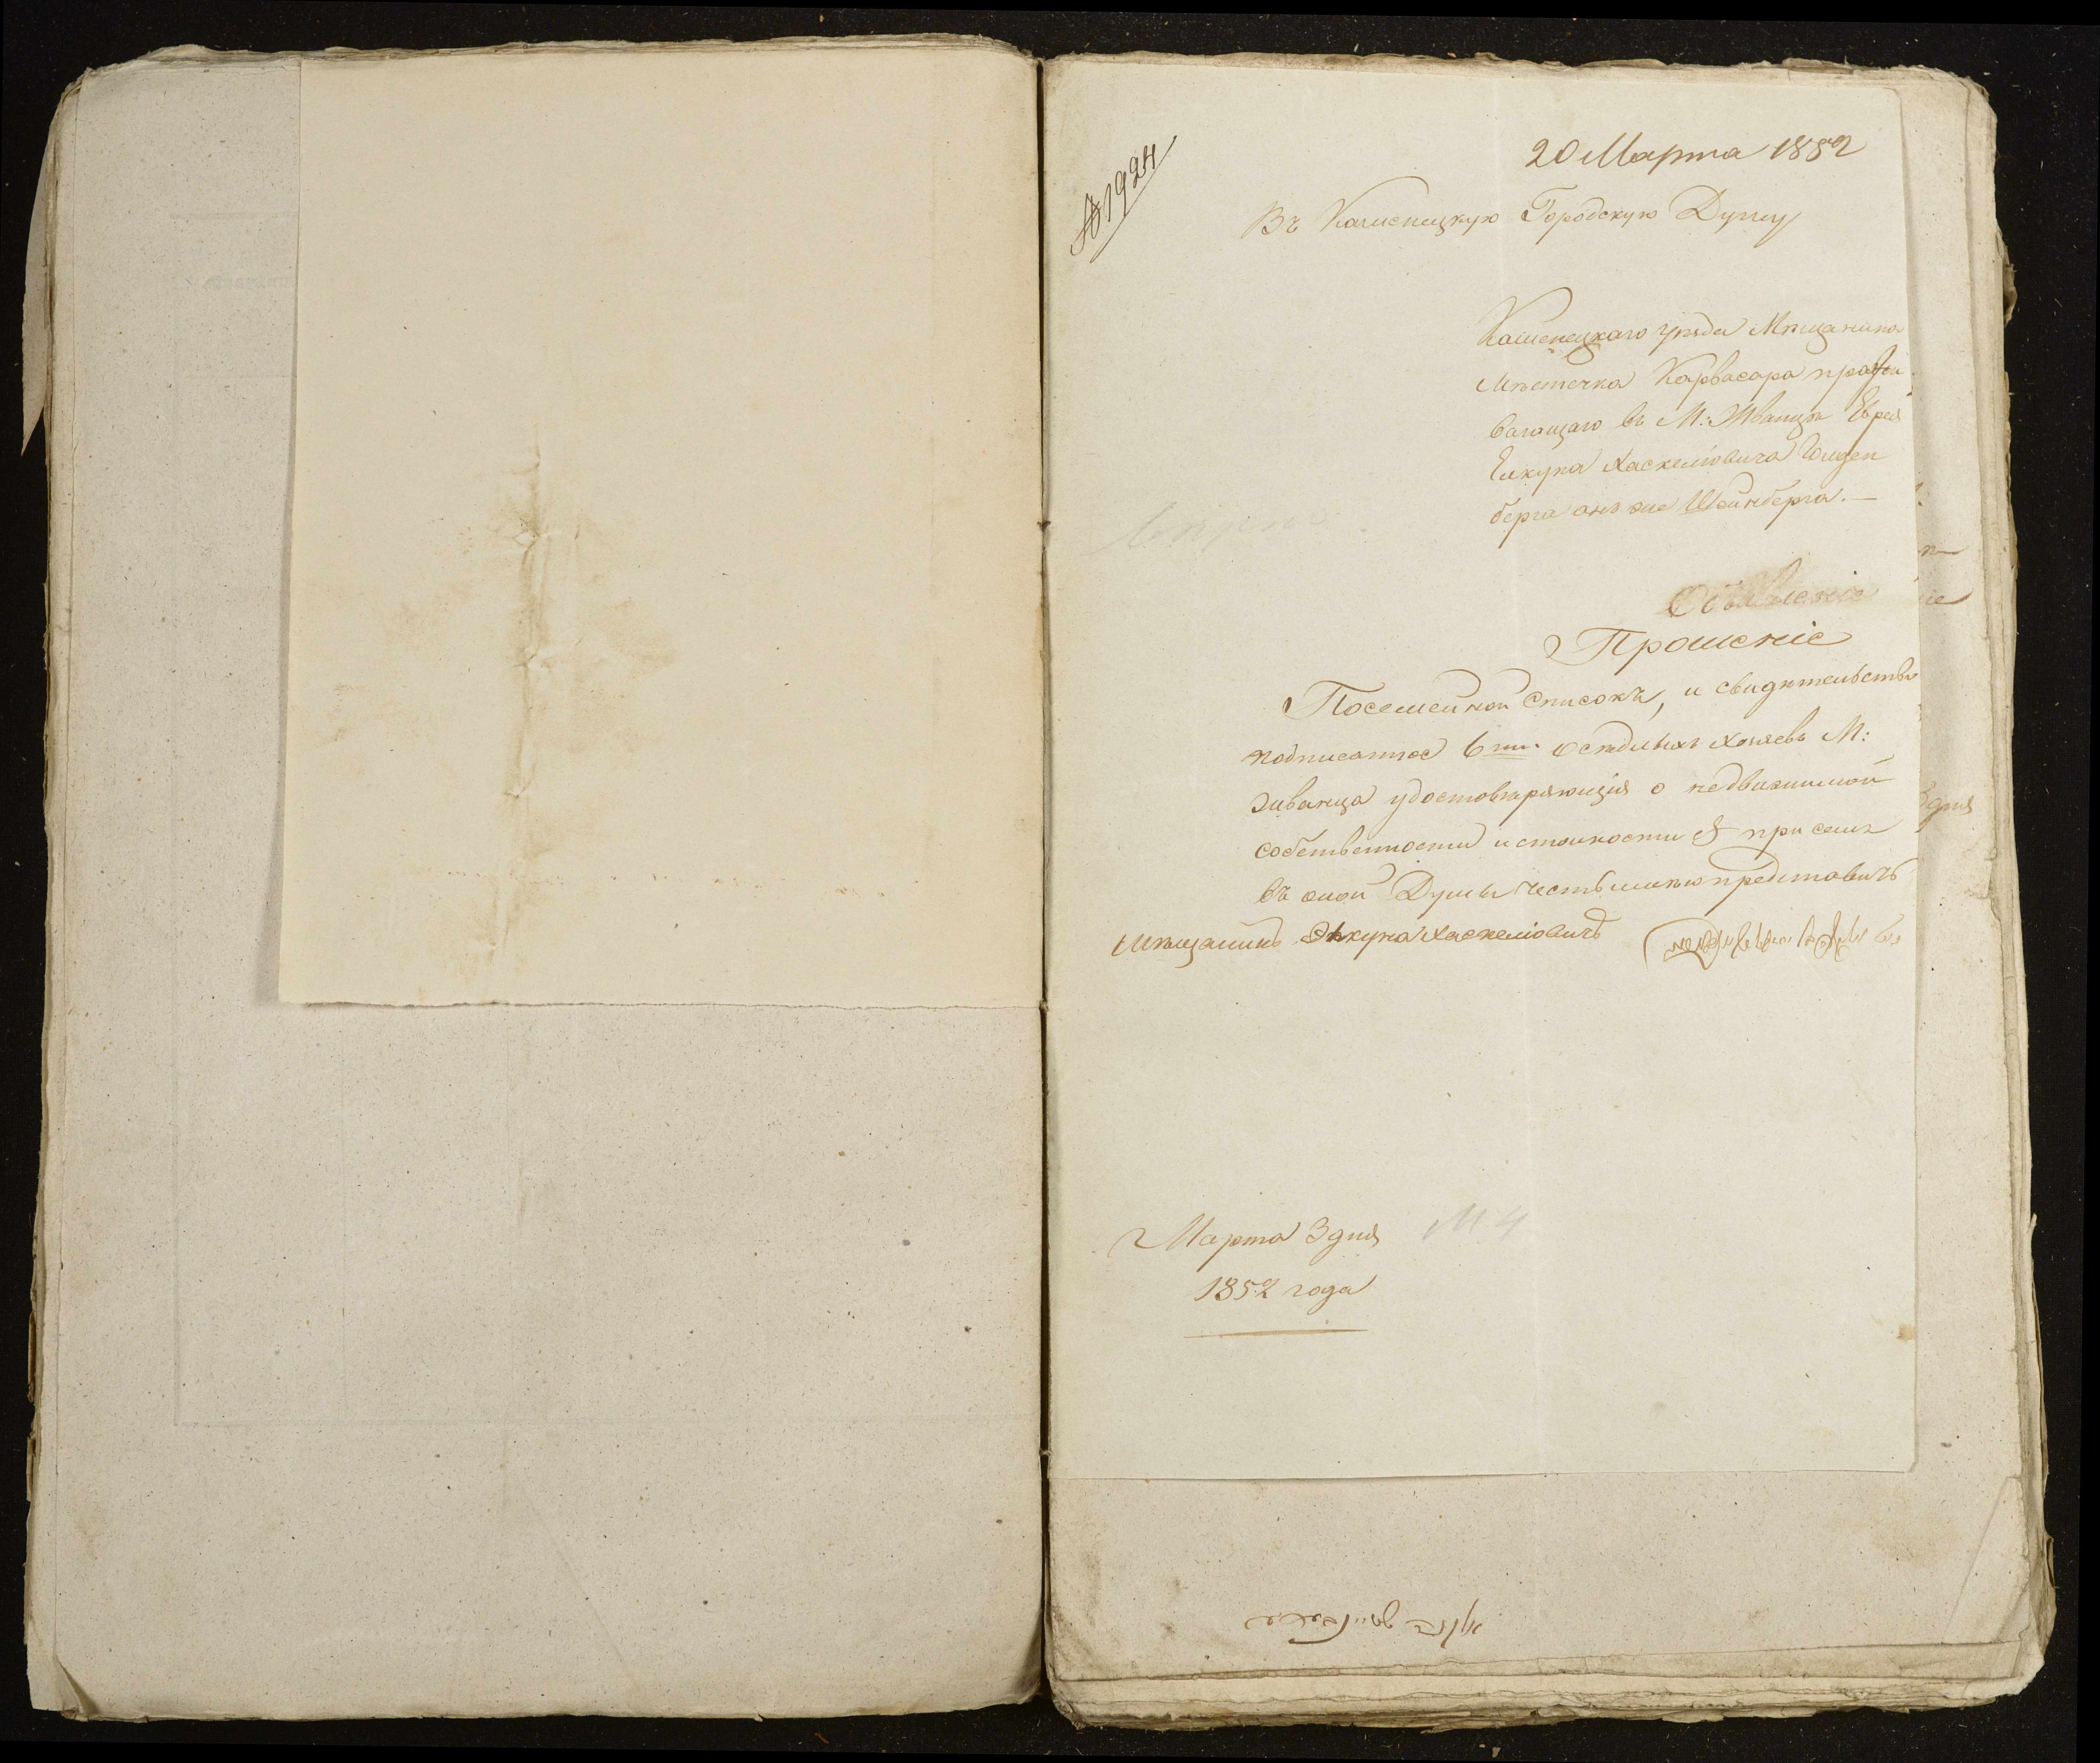 № 1924
20 Марта 1852
Въ Каменецкую Городскую Думу
Каменецкаго уѣзда Мѣщанина
Мѣстечка Карвасара прожи
вающаго въ М: Жванцѣ Еврея
Хаскеліовича
берга онъ же Шейнберга. —
Объявленіе
Прошеніе
Посемейной списокъ, и свидѣтельство
подписанное 6ти осѣдлыхъ хозяевъ М:
Жванца удостовѣряющія о недвижимой
собственности и стоимости при семъ
въ оной Думы честь имѣю представить
Мѣщанинъ Хаскеліовичъ
Марта 3 дня
1852 года
3 дня